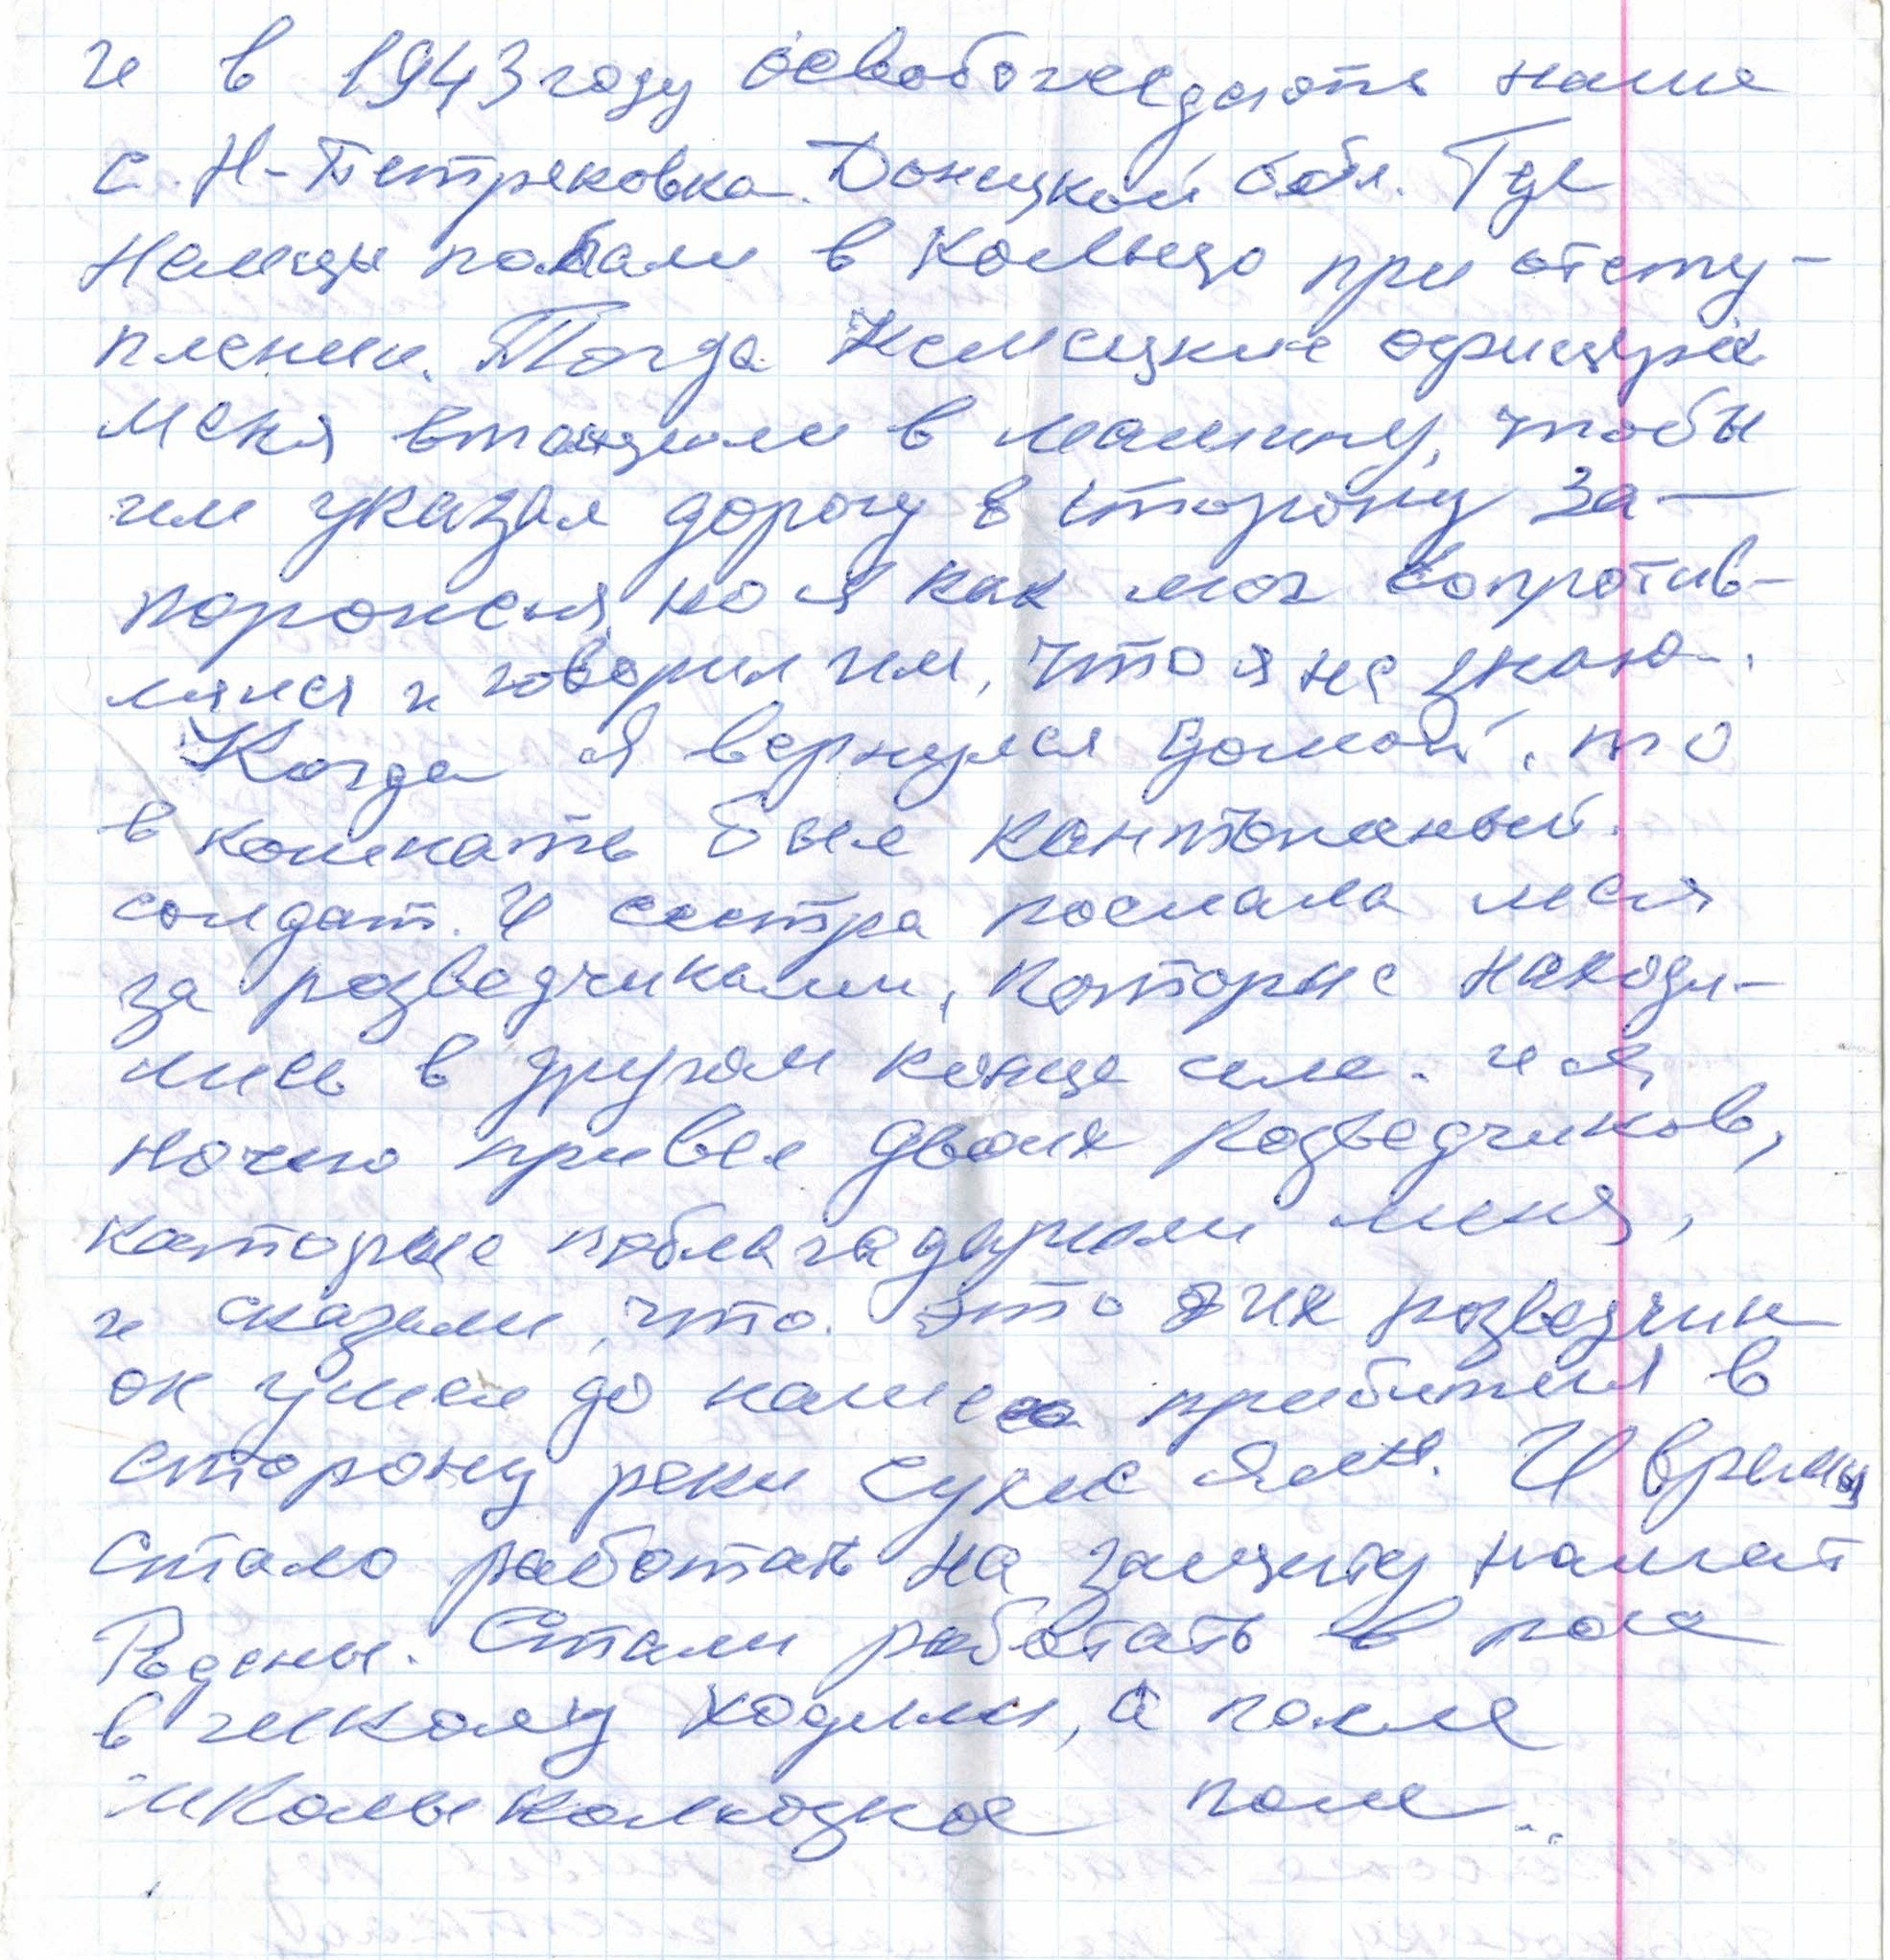 и в 1943 году освобождають наше
с. Н-Петряковка. Донецкой обл. Где
Немцы попали в Кольцо при отсту-
плении. Тогда Немецкие офицеры
меня втащили в машину, чтобы
им указал дорогу в сторону За-
порожся, но я как мог сопротив-
лялся и говорил им, что я не знаю.
Когда я вернулся домой, то
в комнате был контоженый
солдат. И сестра послала меня
за розведчиками, которые находи-
лись в другом конце села. и я
ночью привел двоих розведчиков,
которые поблагадарили меня,
и сказали, что. это их розведчик
он ушел до нашего прибытия в
сторону реки Сухие Ялы. И время
стало работать на защиту нашей
Родины. Стали работать в поле
в школу ходили, а после
школы колхозное поле..